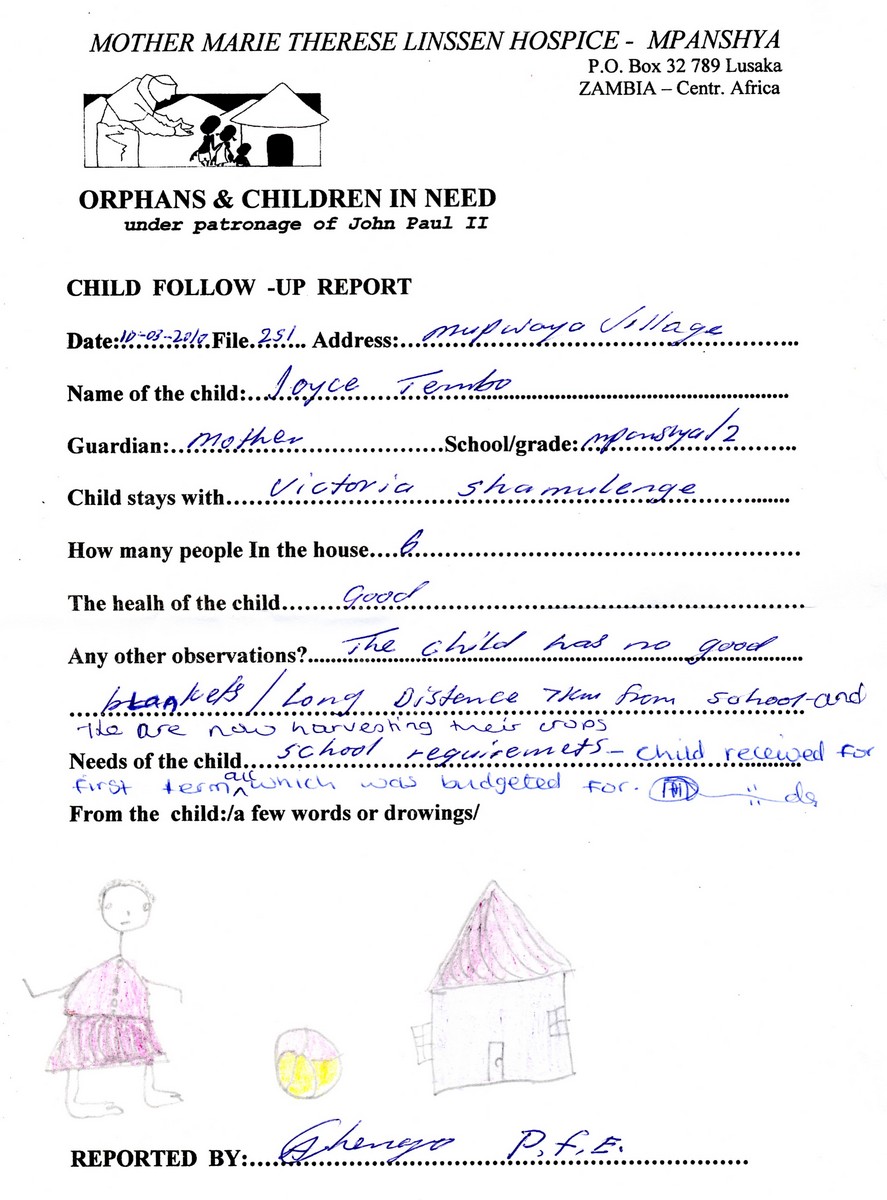 MOTHER MARIE THERESE LINSSEN HOSPICE - MPANSHYA
P.O. Box 32 789 Lusaka
ZAMBIA – Centr. Africa
ORPHANS & CHILDREN IN NEED
under patronage of John Paul II
CHILD FOLLOW -UP REPORT
Date: 10-03-2010 File. 251 Address: Mupwaya Village
Name of the child: Joyce Tembo
Guardian: Mother School/grade: mpanshya/2
Child stays with Victoria Shamulenge
How many people In the house 6
The healh of the child Good
Any other observations? The child has no good
blankets / Long Distance 7km from school-and
are now harvesting their crops
Needs of the child school requiremets - child received for
first term all which was budgeted for.
From the child:/a few words or drowings/
REPORTED BY: P.F.E.